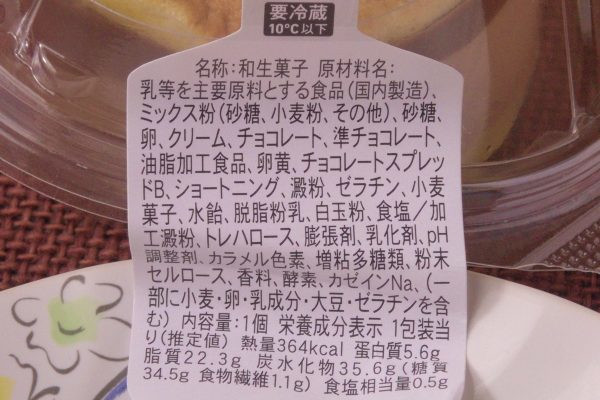 要冷蔵
10℃以下
名称:和生菓子 原材料名:
乳等を主要原料とする食品(国内製造)、
ミックス粉(砂糖、小麦粉、その他)、砂糖、
卵、クリーム、チョコレート、準チョコレート、
油脂加工食品、卵黄、チョコレートスプレッ
ドB、ショートニング、澱粉、ゼラチン、小麦
菓子、水飴、脱脂粉乳、白玉粉、食塩/加
工澱粉、トレハロース、膨張剤、乳化剤、pH
調整剤、カラメル色素、増粘多糖類、粉末
セルロース、香料、酵素、カゼインNa、(一
部に小麦・卵・乳成分・大豆・ゼラチンを含
む) 内容量:1個 栄養成分表示 1包装当
り(推定値) 熱量364kcal 蛋白質5.6g
脂質22.3g 炭水化物35.6g(糖質
34.5g 食物繊維1.1g) 食塩相当量0.5g